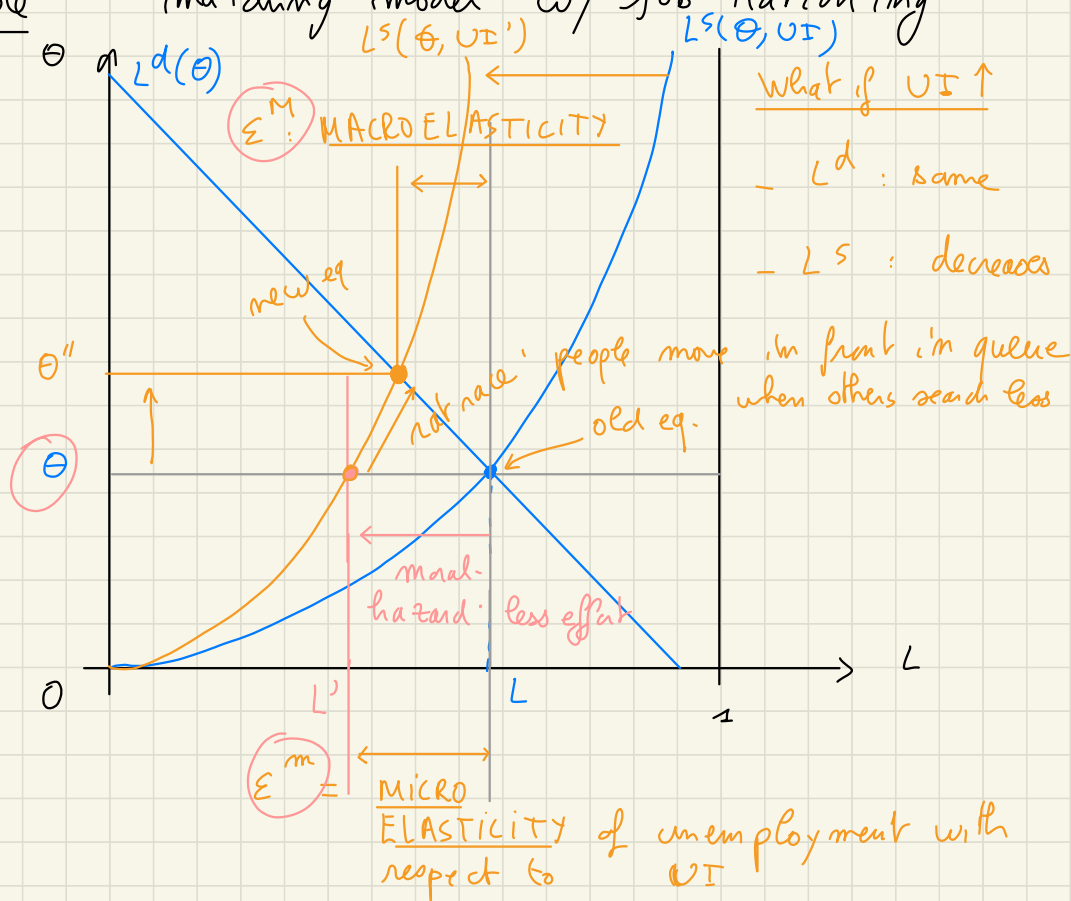 matching model w/ job rationing
θ
L^d(θ)
L^s(θ, UI')
L^s(θ, UI)
ε^M: MACROELASTICITY
What if UI ↑
- L^d : same
- L^s : decreases
new eq
θ''
rat race: people move in front in queue
when others search less
old eq.
θ
moral-
hazard: less effort
0
L'
L
1
L
ε^m =
MICRO
ELASTICITY of unemployment with
respect to UI